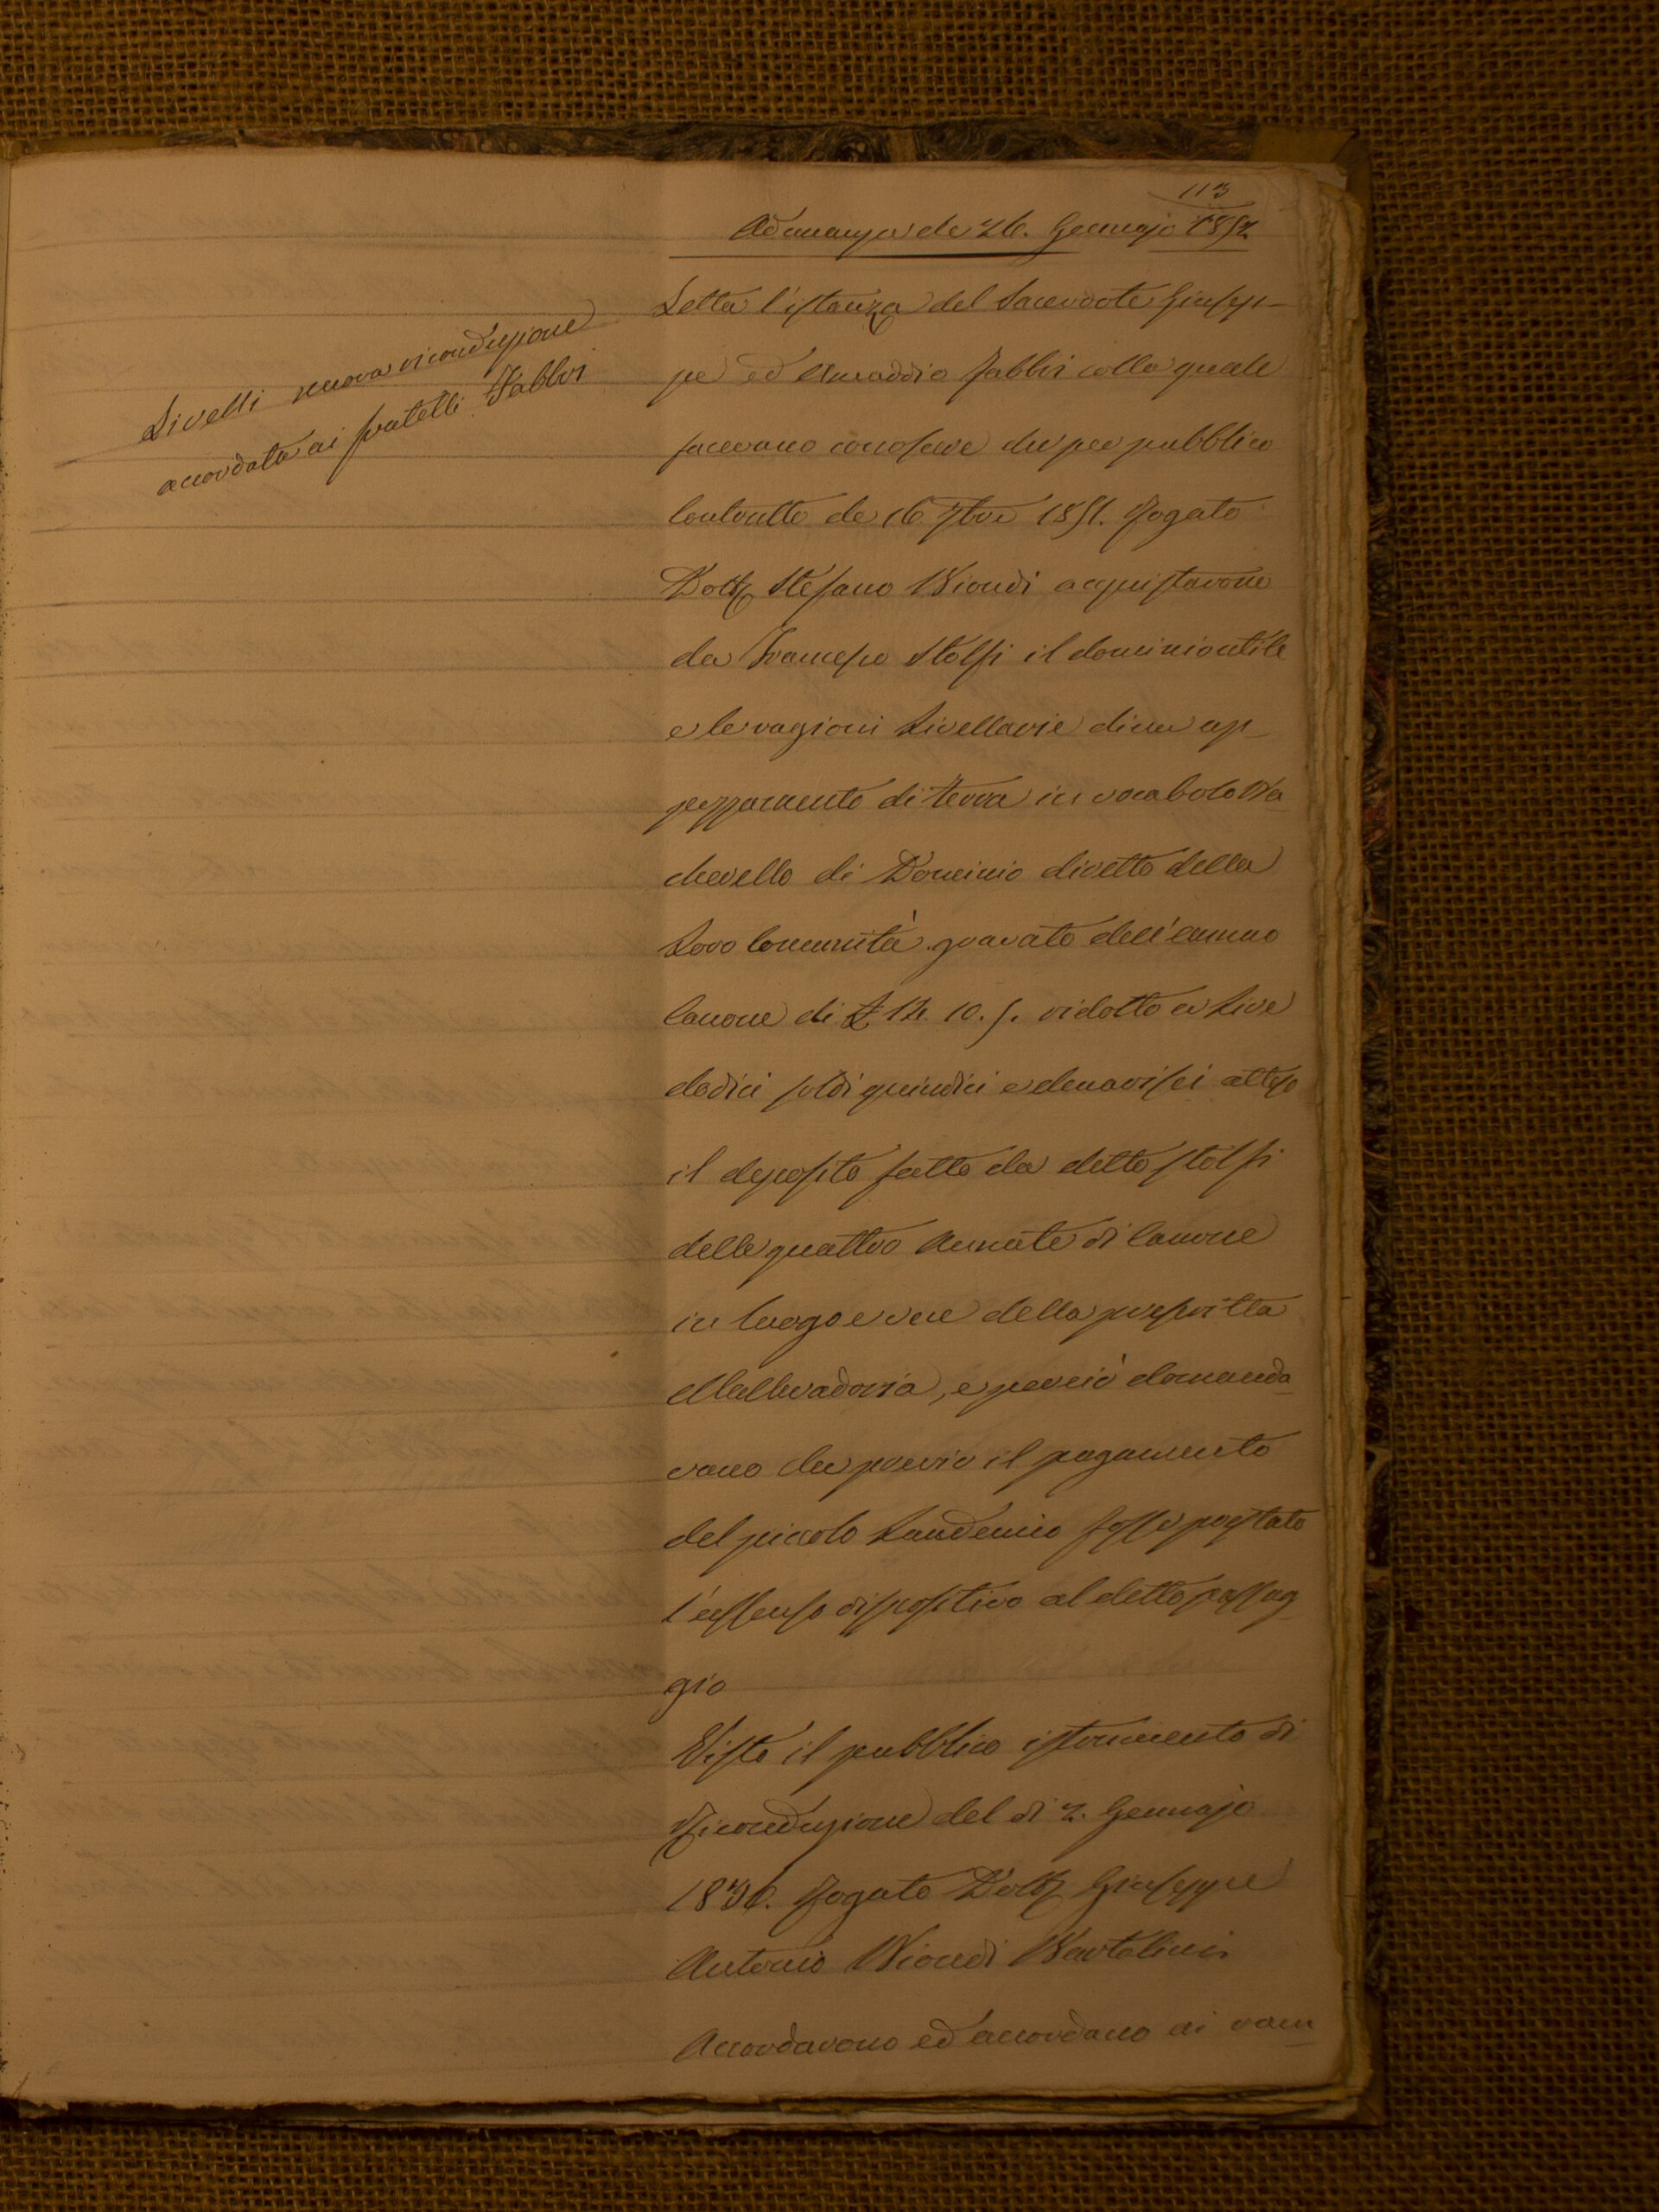 113
Adunanza de 26. Gennajo 1852
Livelli nuova riconduzione
accordata ai fratelli Fabbri
Letta l'istanza del Sacerdote Giusep-
pe ed Amaddio Fabbri colla quale
facevano conoscere che per pubblico
Contratto de 16 7bre 1851. Rogato
Dott. Stefano Biondi acquistarono
da Francesco Stolfi il dominio utile
e le ragioni Livellarie di un ap-
pezzamento di terra in vocabolo Ba
cherello di Dominio diretto della
Loro Comunità gravato dell'annuo
Canone di £ 12. 10. 5. ridotto a Lire
dodici soldi quindici e denari sei atteso
il deposito fatto da detto Stolfi
delle quattro Annate di Canone
in luogo e vece della prescritta
Mallevadoria, e perciò domanda
vano che previo il pagamento
del piccolo Laudemio fosse prestato
l'assenso dispositivo al detto passag
gio
Visto il pubblico istrumento di
Riconduzione del dì 2. Gennajo
1836. Rogato Dott. Giuseppe
Antonio Biondi Bartolini
Accordarono ed accordano ai ram